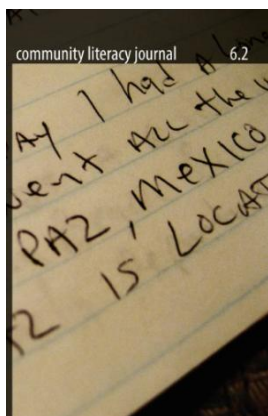 community literacy journal 6.2
AY I had A long
went ALL the
PAZ, MEXICO
IS LOCAT